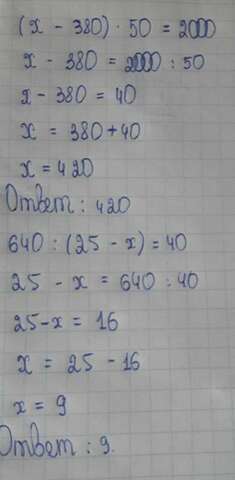 (x - 380) · 50 = 2000
x - 380 = 2000 : 50
x - 380 = 40
x = 380 + 40
x = 420
Ответ : 420
640 : (25 - x) = 40
25 - x = 640 : 40
25 - x = 16
x = 25 - 16
x = 9
Ответ : 9.